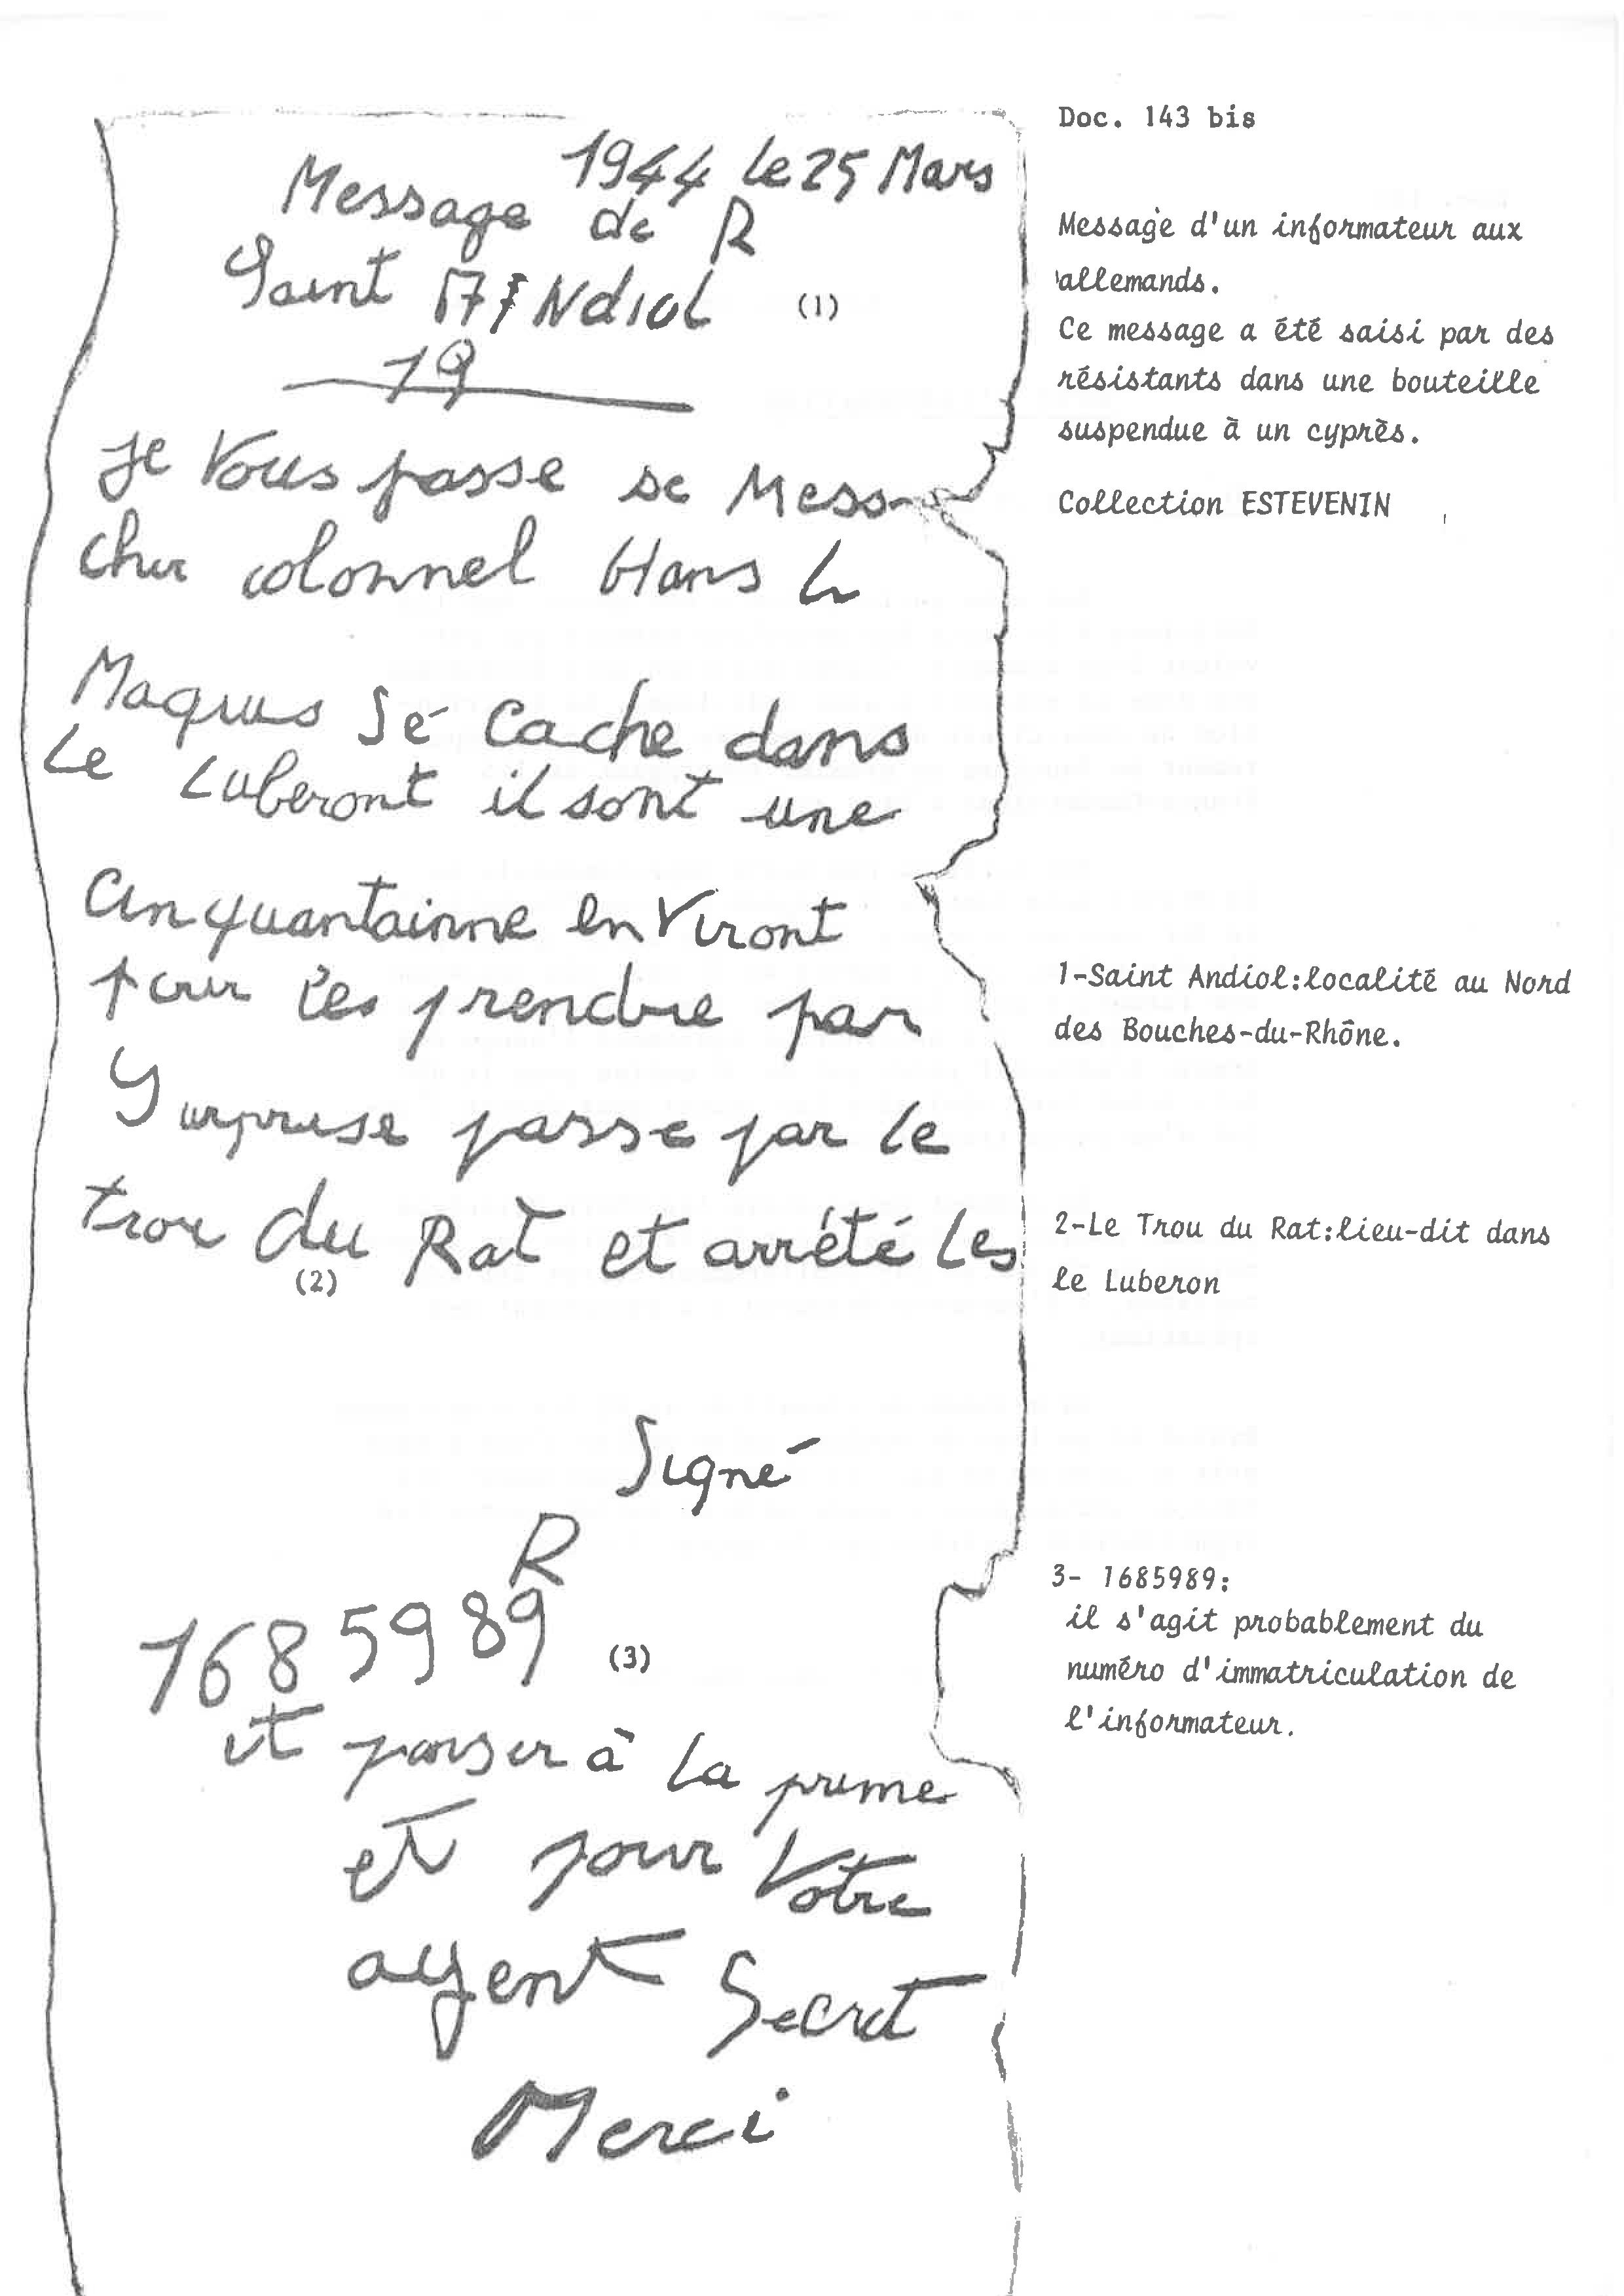 1944 le 25 Mars
Message de R
Saint ANdiol (1)
19
Je Vous passe se Mess
cher colonnel Hans le
Maquis Sé Cache dans
Le Luberont il sont une
Cinquantainne en Viront
pour les prendre par
Surprise passe par le
trou du Rat et arrété Les
(2)
Signé
R
1685989 (3)
et panser à La prime
et pour Votre
agent Secret
Merci
Doc. 143 bis
Message d'un informateur aux
allemands.
Ce message a été saisi par des
résistants dans une bouteille
suspendue à un cyprès.
Collection ESTEVENIN
1-Saint Andiol:localité au Nord
des Bouches-du-Rhône.
2-Le Trou du Rat:lieu-dit dans
le Luberon
3- 1685989:
il s'agit probablement du
numéro d'immatriculation de
l'informateur.